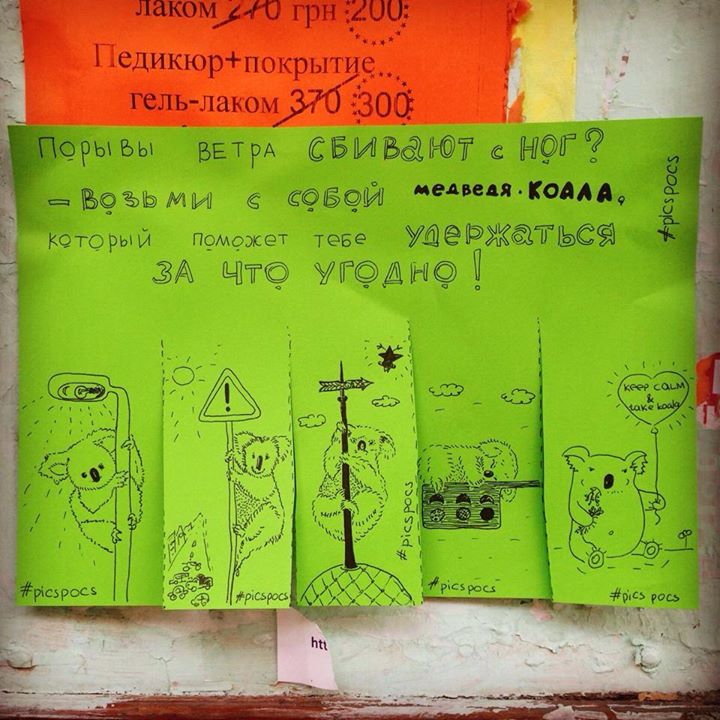 лаком 270 грн 200
Педикюр+покрытие
гель-лаком 370 300
Порывы ветра сбивают с ног?
– Возьми с собой медведя·коала,
который поможет тебе удержаться
за что угодно!
#picspocs
keep calm
&
take koala
#picspocs
#picspocs
#picspocs
#picspocs
#picspocs
htt